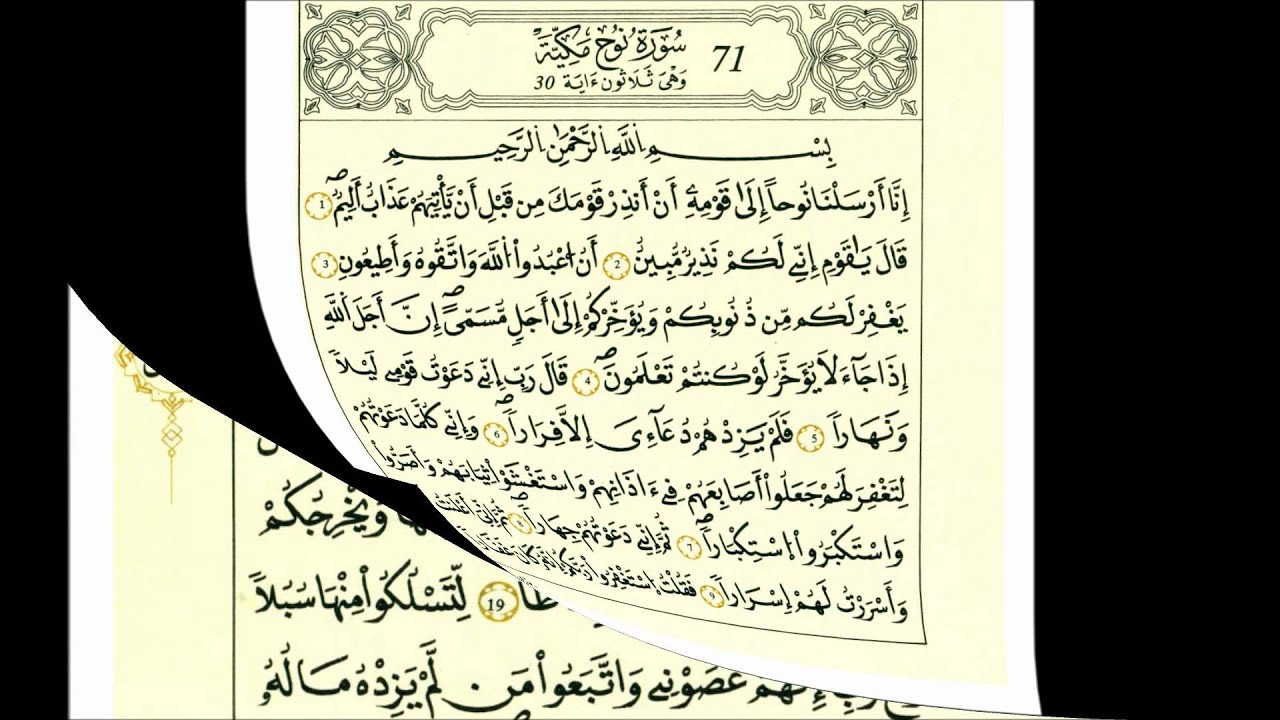 سُورَةُ نُوحٍ مَكِّيَّةٌ 71
وَهْيَ ثَلَاثُونَ ءَايَة 30
بِسْمِ اِللَّهِ اِلرَّحْمَٰنِ اِلرَّحِيمِ
إِنَّا أَرْسَلْنَا نُوحاً إِلَىٰ قَوْمِهِۦٓ أَنْ أَنذِرْ قَوْمَكَ مِن قَبْلِ أَنْ يَّأْتِيَهُمْ عَذَابٌ أَلِيمٌۖ 1
قَالَ يَٰقَوْمِ إِنِّي لَكُمْ نَذِيرٌ مُّبِينٌ 2 أَنُ اُعْبُدُواْ اُللَّهَ وَاتَّقُوهُ وَأَطِيعُونِ 3
يَغْفِرْ لَكُم مِّن ذُنُوبِكُمْ وَيُؤَخِّرْكُمْ إِلَىٰ أَجَلٍ مُّسَمّىًۖ إِنَّ أَجَلَ اَللَّهِ
إِذَا جَآءَ لَا يُؤَخَّرُ لَوْ كُنتُمْ تَعْلَمُونَۖ 4 قَالَ رَبِّ إِنِّي دَعَوْتُ قَوْمِي لَيْلاً
وَنَهَاراً 5 فَلَمْ يَزِدْهُمْ دُعَآءِىَ إِلَّا فِرَاراًۖ 6 وَإِنِّي كُلَّمَا دَعَوْتُهُمْ
لِتَغْفِرَ لَهُمْ جَعَلُواْ أَصَٰبِعَهُمْ فِي ءَاذَانِهِمْ وَاسْتَغْشَوْاْ ثِيَابَهُمْ وَأَصَرُّواْ
وَاسْتَكْبَرُواْ اُسْتِكْبَاراًۖ 7 ثُمَّ إِنِّي دَعَوْتُهُمْ جِهَاراًۖ 8 ثُمَّ إِنِّيَ أَعْلَنتُ
وَأَسْرَرْتُ لَهُمْ إِسْرَاراً 9 فَقُلْتُ اُسْتَغْفِرُواْ رَبَّكُمْ إِنَّهُۥ كَانَ
وَيُخْرِجُكُمْ
19 لِّتَسْلُكُواْ مِنْهَا سُبُلاً
عَصَوْنِي وَاتَّبَعُواْ مَن لَّمْ يَزِدْهُ مَالُهُۥ